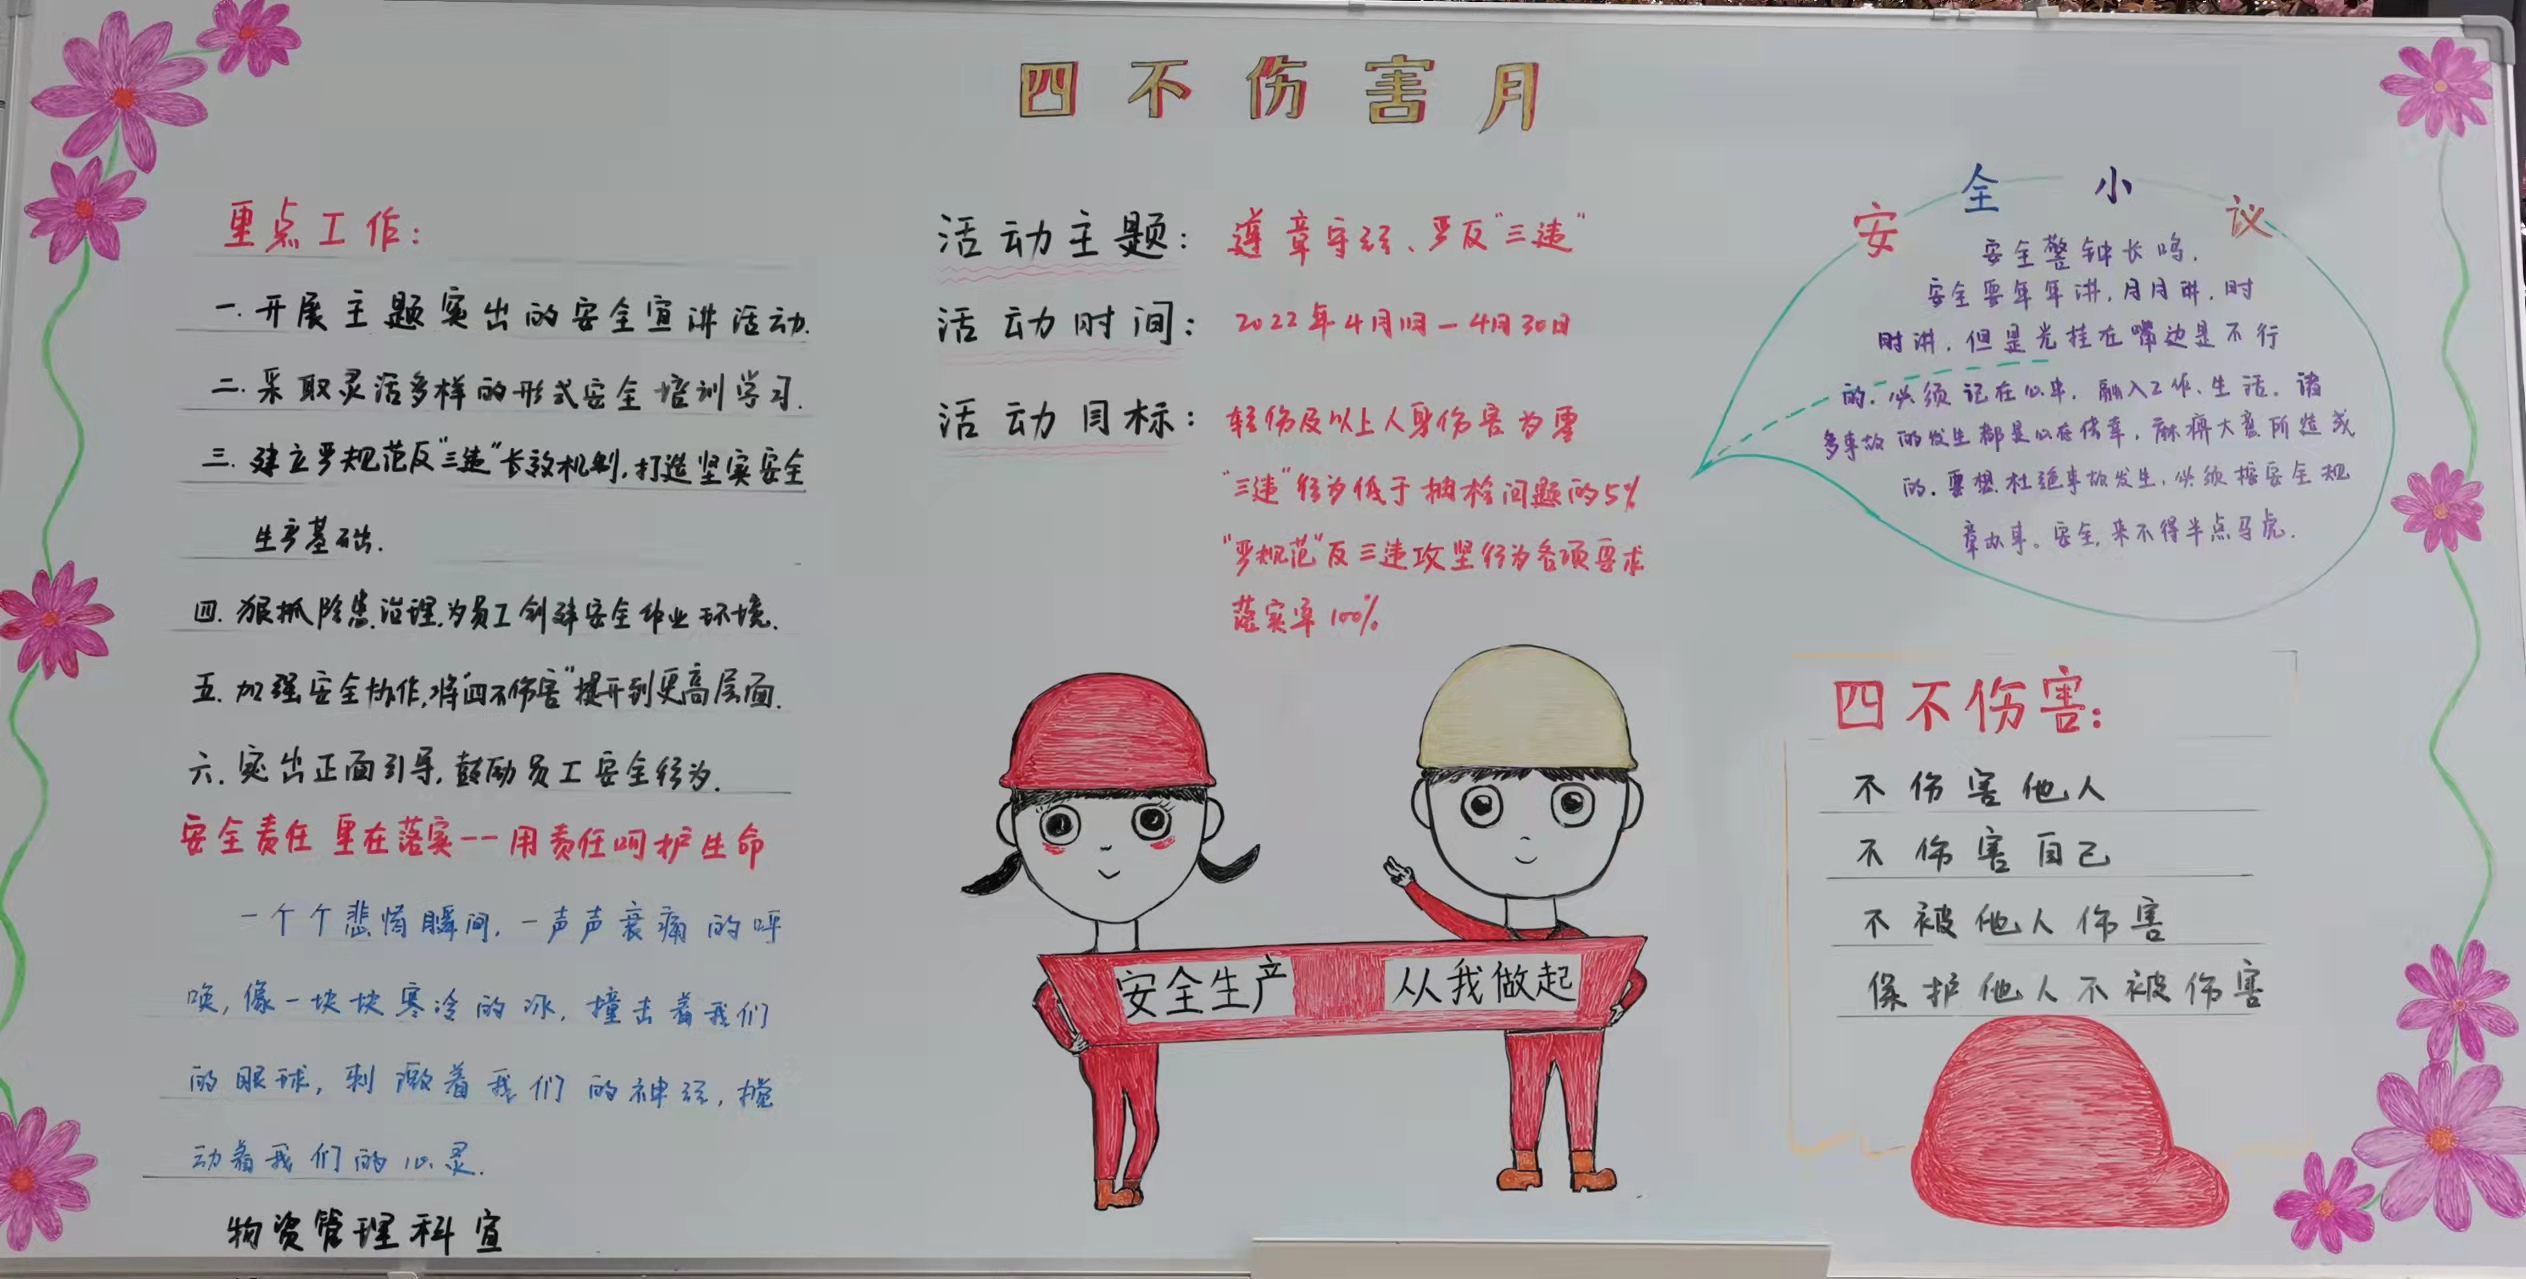 四不伤害月
重点工作：
一.开展主题突出的安全宣讲活动.
二.采取灵活多样的形式安全培训学习.
三.建立严规范反“三违”长效机制,打造坚实安全
生产基础.
四.狠抓隐患治理,为员工创建安全作业环境.
五.加强安全协作,将“四不伤害”提升到更高层面.
六.突出正面引导,鼓励员工安全行为.
安全责任 重在落实--用责任呵护生命
一个个悲惨瞬间,一声声哀痛的呼
唤,像一块块寒冷的冰,撞击着我们
的眼球,刺激着我们的神经,搅
动着我们的心灵.
物资管理科宣
活动主题：遵章守纪、严反“三违”
活动时间：2022年4月1日—4月30日
活动目标：轻伤及以上人身伤害为零
“三违”行为低于抽检问题的5%
“严规范”反三违攻坚行为各项要求
落实率100%
安全生产 从我做起
安全小议
安全警钟长鸣.
安全要年年讲,月月讲,时
时讲,但是光挂在嘴边是不行
的.必须记在心中,融入工作、生活.诸
多事故的发生都是心存侥幸,麻痹大意所造成
的.要想杜绝事故发生,必须按安全规
章办事。安全,来不得半点马虎.
四不伤害：
不伤害他人
不伤害自己
不被他人伤害
保护他人不被伤害